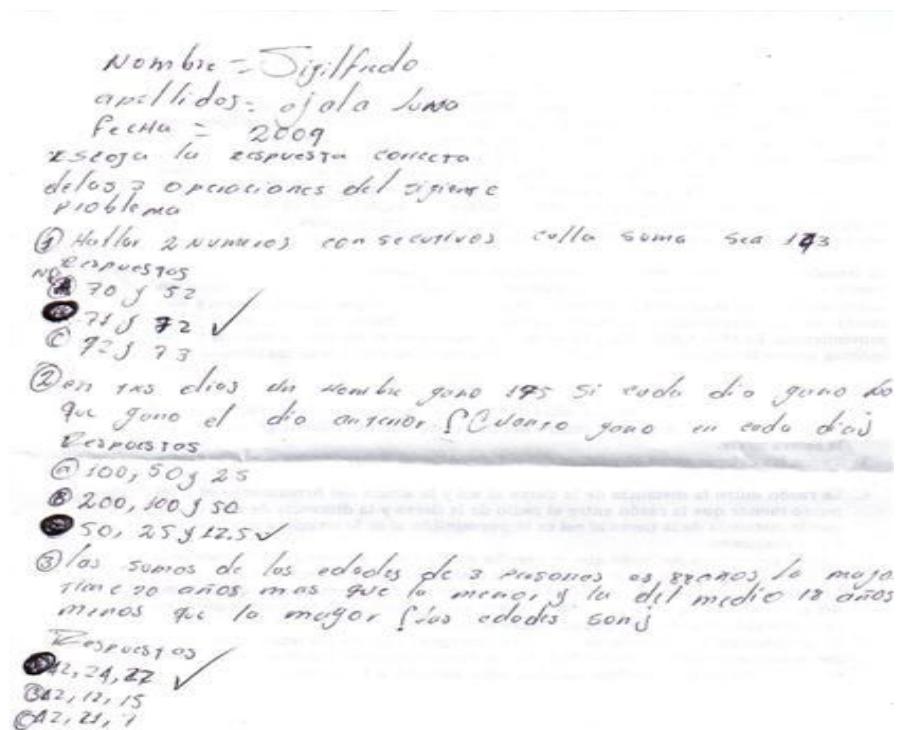 Nombre = Sigilfredo
apellidos = ojala
fecHa = 2009
Escoja la respuesta correcta
de las 3 operaciones del sigiente
problema
① Hallar 2 numeros consecutivos culla suma sea 143
Respuestas
70 y 52
71 y 72 ✓
C 72 y 73
② en tres dias un Hombre gano 175 Si cada dia gano Lo
que gano el dia anterior Cuanto gano en cada dia
Respuestas
a 100, 50 y 25
B 200, 100 y 50
50, 25 y 12.5 ✓
③ las sumas de las edades de 3 personas es años la mayor
Tiene 20 años mas que la menor y la del medio 18 años
menos que la mayor Las edades son
Respuestas
42, 24, 22 ✓
B 42, 12, 15
C 42, 21, 7